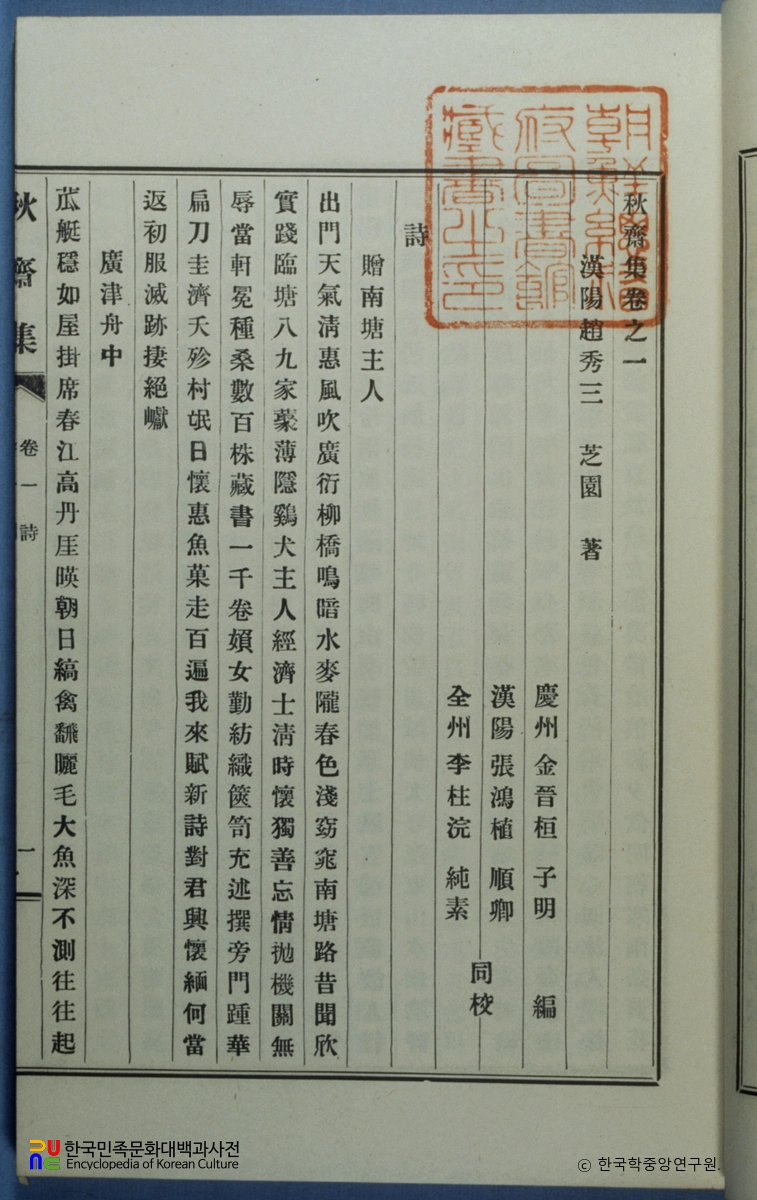 秋齋集卷之一
漢陽趙秀三 芝園 著
慶州 金晉桓 子明 編
漢陽 張鴻植 順卿
全州 李柱浣 純素
同校
詩
贈南塘主人
出門天氣清惠風吹廣衍柳橋鳴暗水麥隴春色淺窈窕南塘路昔聞欣
實踐臨塘八九家蒙薄隱鷄犬主人經濟士清時懷獨善忘情抛機關無
辱當軒冕種桑數百株藏書一千卷嬪女勤紡織篋笥充述撰旁門踵華
扁刀圭濟夭殄村氓日懷惠魚菓走百遍我來賦新詩對君興懷緬何當
返初服滅跡捿絕巘
廣津舟中
苽艇穩如屋掛席春江高丹厓暎朝日縞禽飜曬毛大魚深不測往往起
秋齋集
卷一 詩
一
朝鮮總督府圖書館藏書之印
한국민족문화대백과사전
Encyclopedia of Korean Culture
© 한국학중앙연구원.